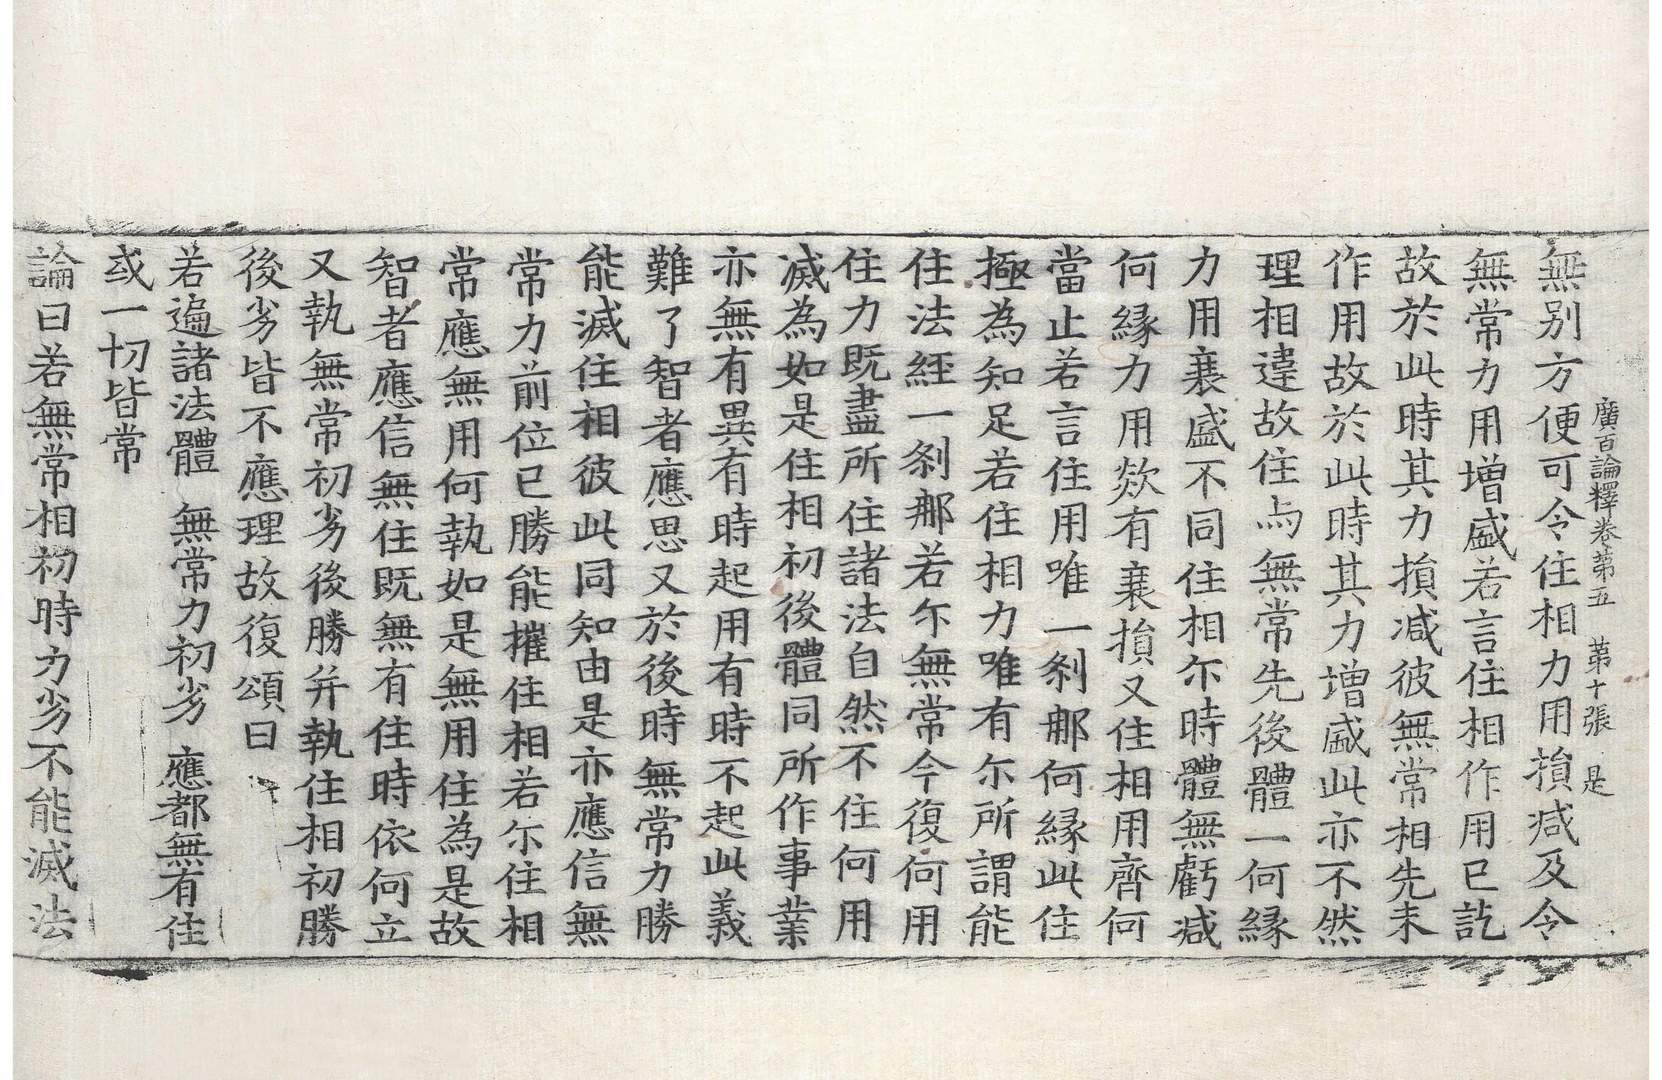 廣百論釋卷第五　第十張　是
無別方便可令住相力用損减及令
無常力用增盛若言住相作用已訖
故於此時其力損减彼無常相先未
作用故於此時其力增盛此亦不然
理相違故住与無常先後體一何緣
力用衰盛不同住相尒時體無虧减
何緣力用欻有衰損又住相用齊何
當止若言住用唯一剎那何緣此住
極為知足若住相力唯有尒所謂能
住法經一剎那若尒無常今復何用
住力既盡所住諸法自然不住何用
滅為如是住相初後體同所作事業
亦無有異有時起用有時不起此義
難了智者應思又於後時無常力勝
能滅住相彼此同知由是亦應信無
常力前位已勝能摧住相若尒住相
常應無用何執如是無用住為是故
智者應信無住既無有住時依何立
又執無常初劣後勝并執住相初勝
後劣皆不應理故復頌曰
若遍諸法體　無常力初劣　應都無有住
或一切皆常
論曰若無常相初時力劣不能滅法